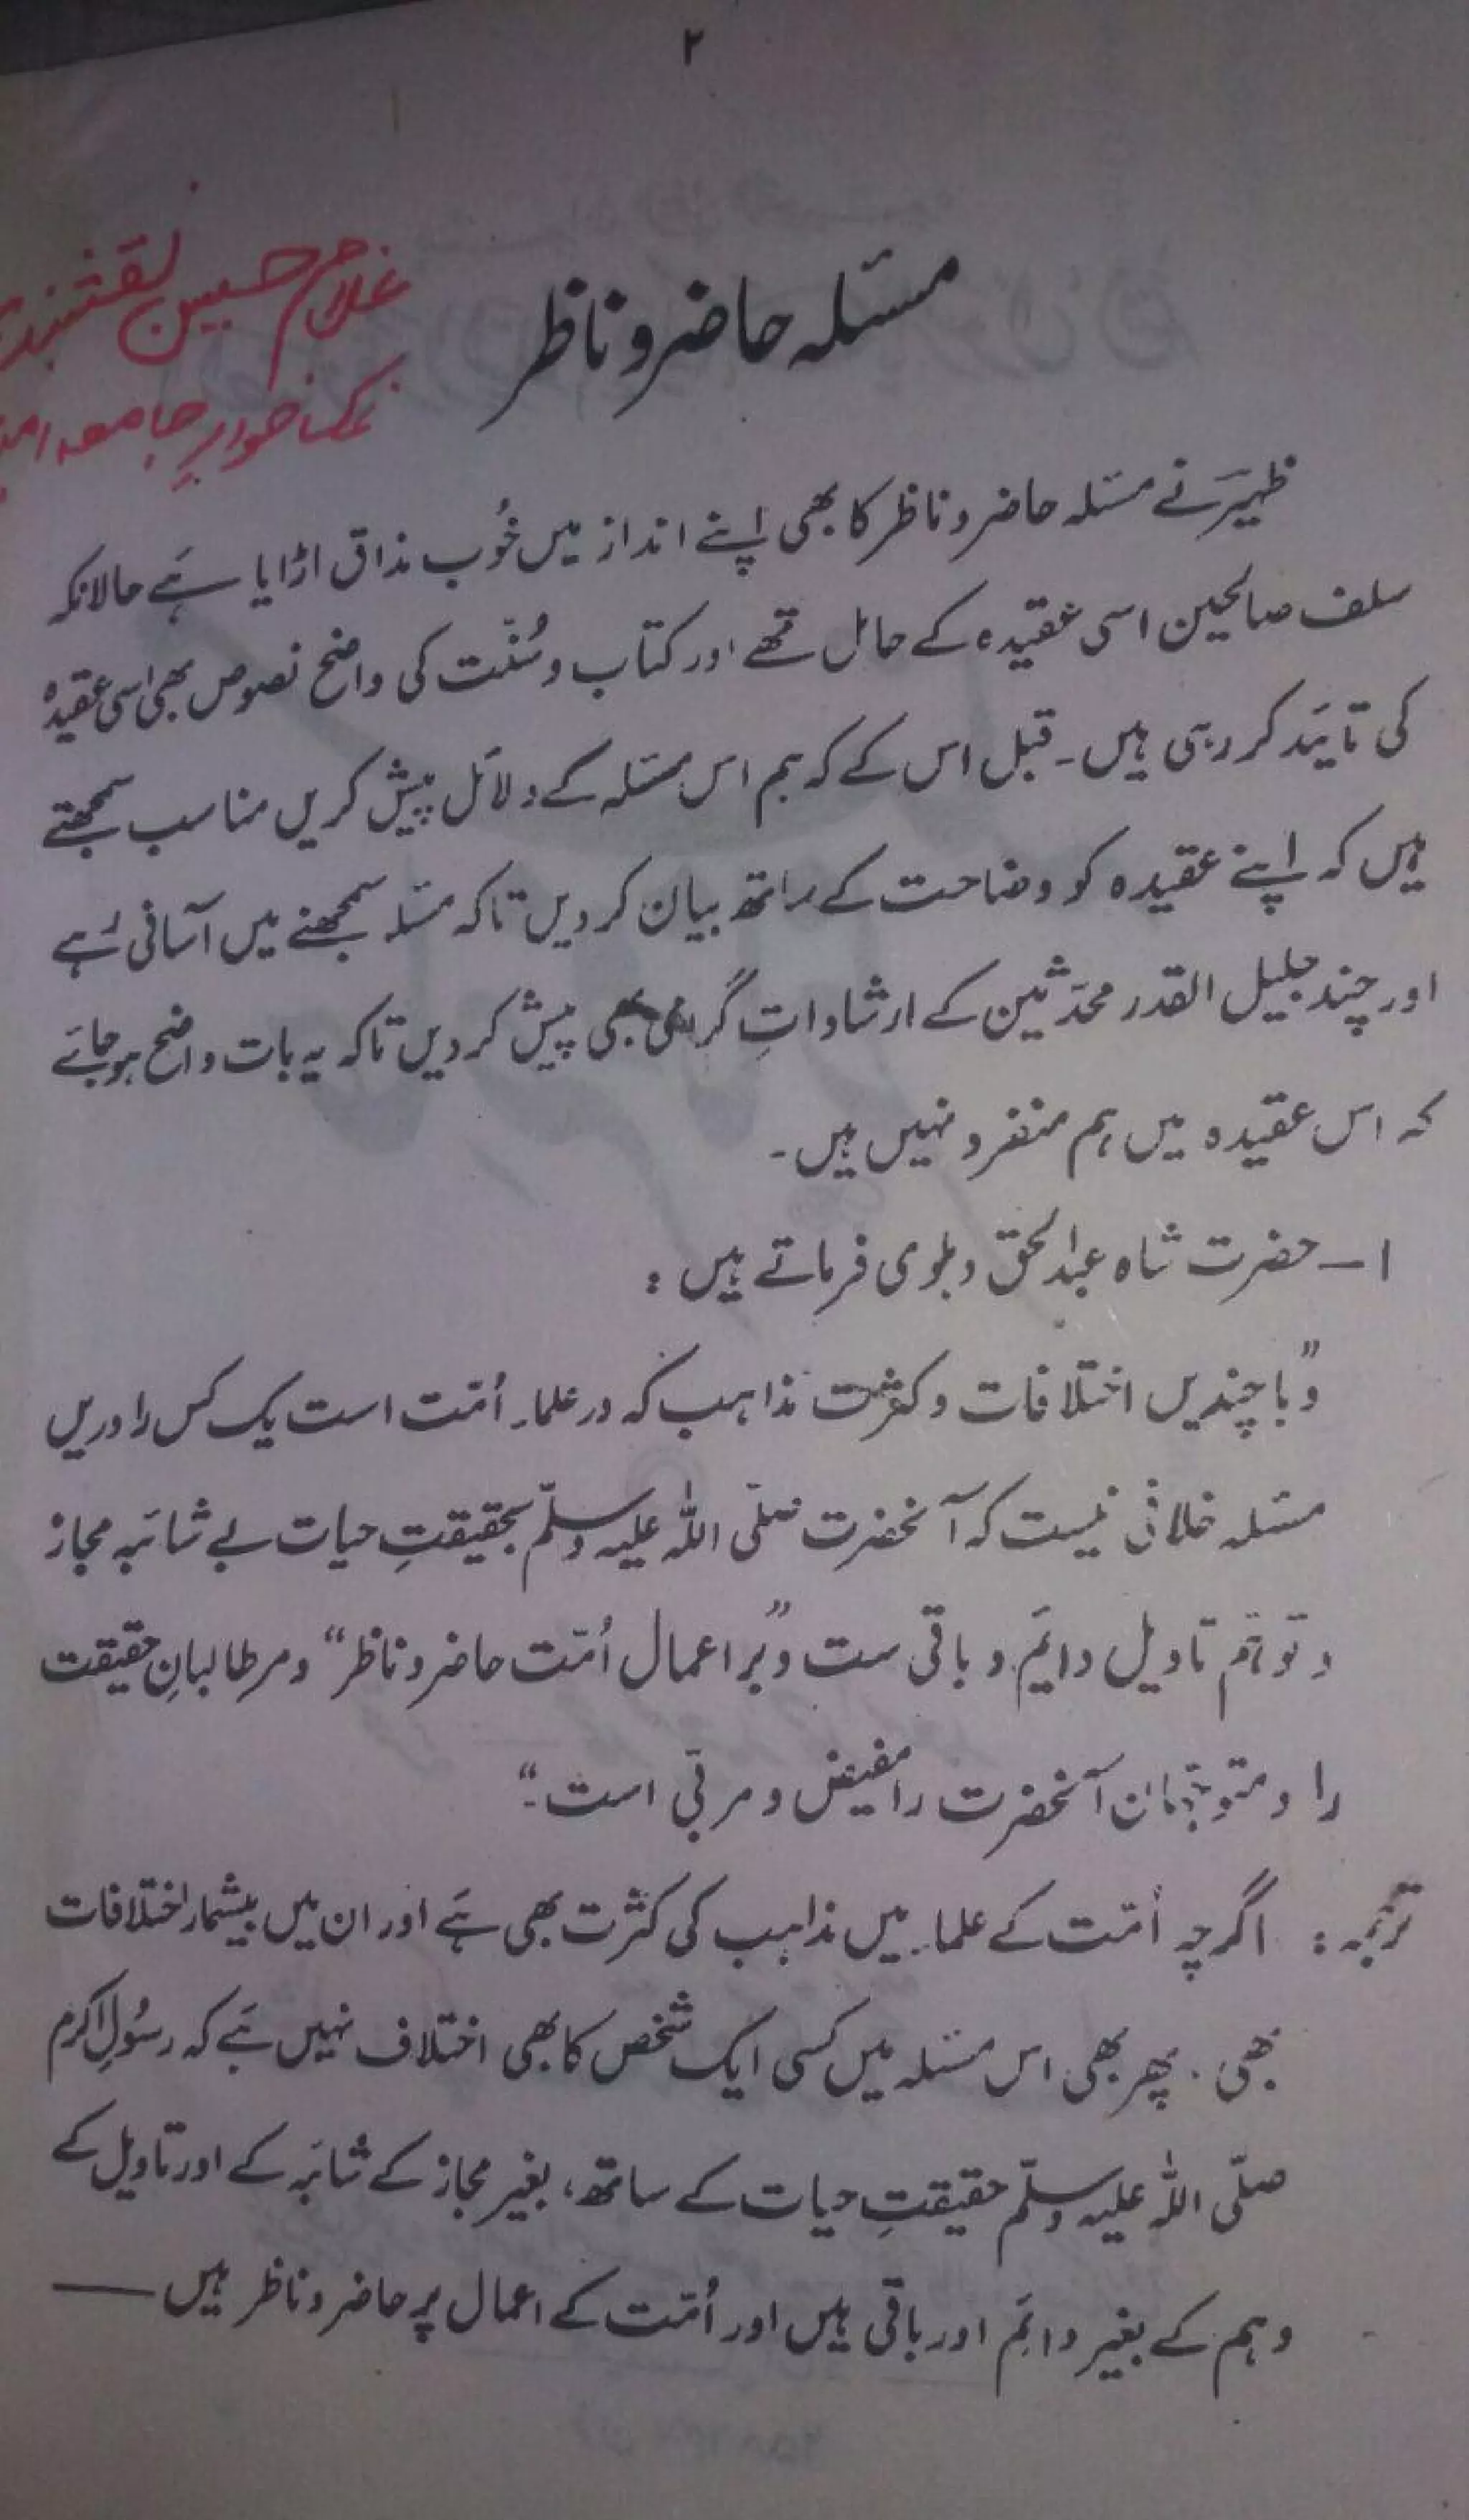 ۲
غلام حسین نقشبندی
نمک خوار جامعہ
مسئلہ حاضر و ناظر
ظہیر نے مسئلہ حاضر و ناظر کا بھی اپنے انداز میں خُوب مذاق اڑایا ہَے حالانکہ
سلف صالحین اسی عقیدہ کے حامل تھے اور کتاب و سُنّت کی واضح نصوص بھی اسی عقیدہ
کی تائید کر رہی ہیں۔ قبل اس کے کہ ہم اس مسئلہ کے دلائل پیش کریں مناسب سمجھتے
ہیں کہ اپنے عقیدہ کو وضاحت کے ساتھ بیان کر دیں تاکہ مسئلہ سمجھنے میں آسانی رُہے
اور چند جلیل القدر محدّثین کے ارشاداتِ گرامی بھی پیش کر دیں تاکہ یہ بات واضح ہو جائے
کہ اس عقیدہ میں ہم منفرد نہیں ہیں۔
۱ــ حضرت شاہ عبدالحق دہلوی فرماتے ہیں :
”و با چندیں اختلافات و کثرت مذاہب کہ در علماء اُمّت است یک کس را دریں
مسئلہ خلافی نیست کہ آنحضرت صلّی اللہ علیہ وسلّم بحقیقتِ حیات بے شائبہ مجاز
و توہّم تاویل دائم و باقی ست و ”بر اعمال اُمّت حاضر و ناظر“ و مر طالبانِ حقیقت
را و متوجّہان آنحضرت را مفیض و مربّی است۔“
ترجمہ : اگرچہ اُمّت کے علماء میں مذاہب کی کثرت بھی ہَے اور ان میں بیشمار اختلافات
بھی۔ پھر بھی اس مسئلہ میں کسی ایک شخص کا بھی اختلاف نہیں ہَے کہ رسُولِ اکرم
صلّی اللہ علیہ وسلّم حقیقتِ حیات کے ساتھ، بغیر مجاز کے شائبہ کے اور تاویل کے
وہم کے بغیر دائم اور باقی ہیں اور اُمّت کے اعمال پر حاضر و ناظر ہیں ـــــ